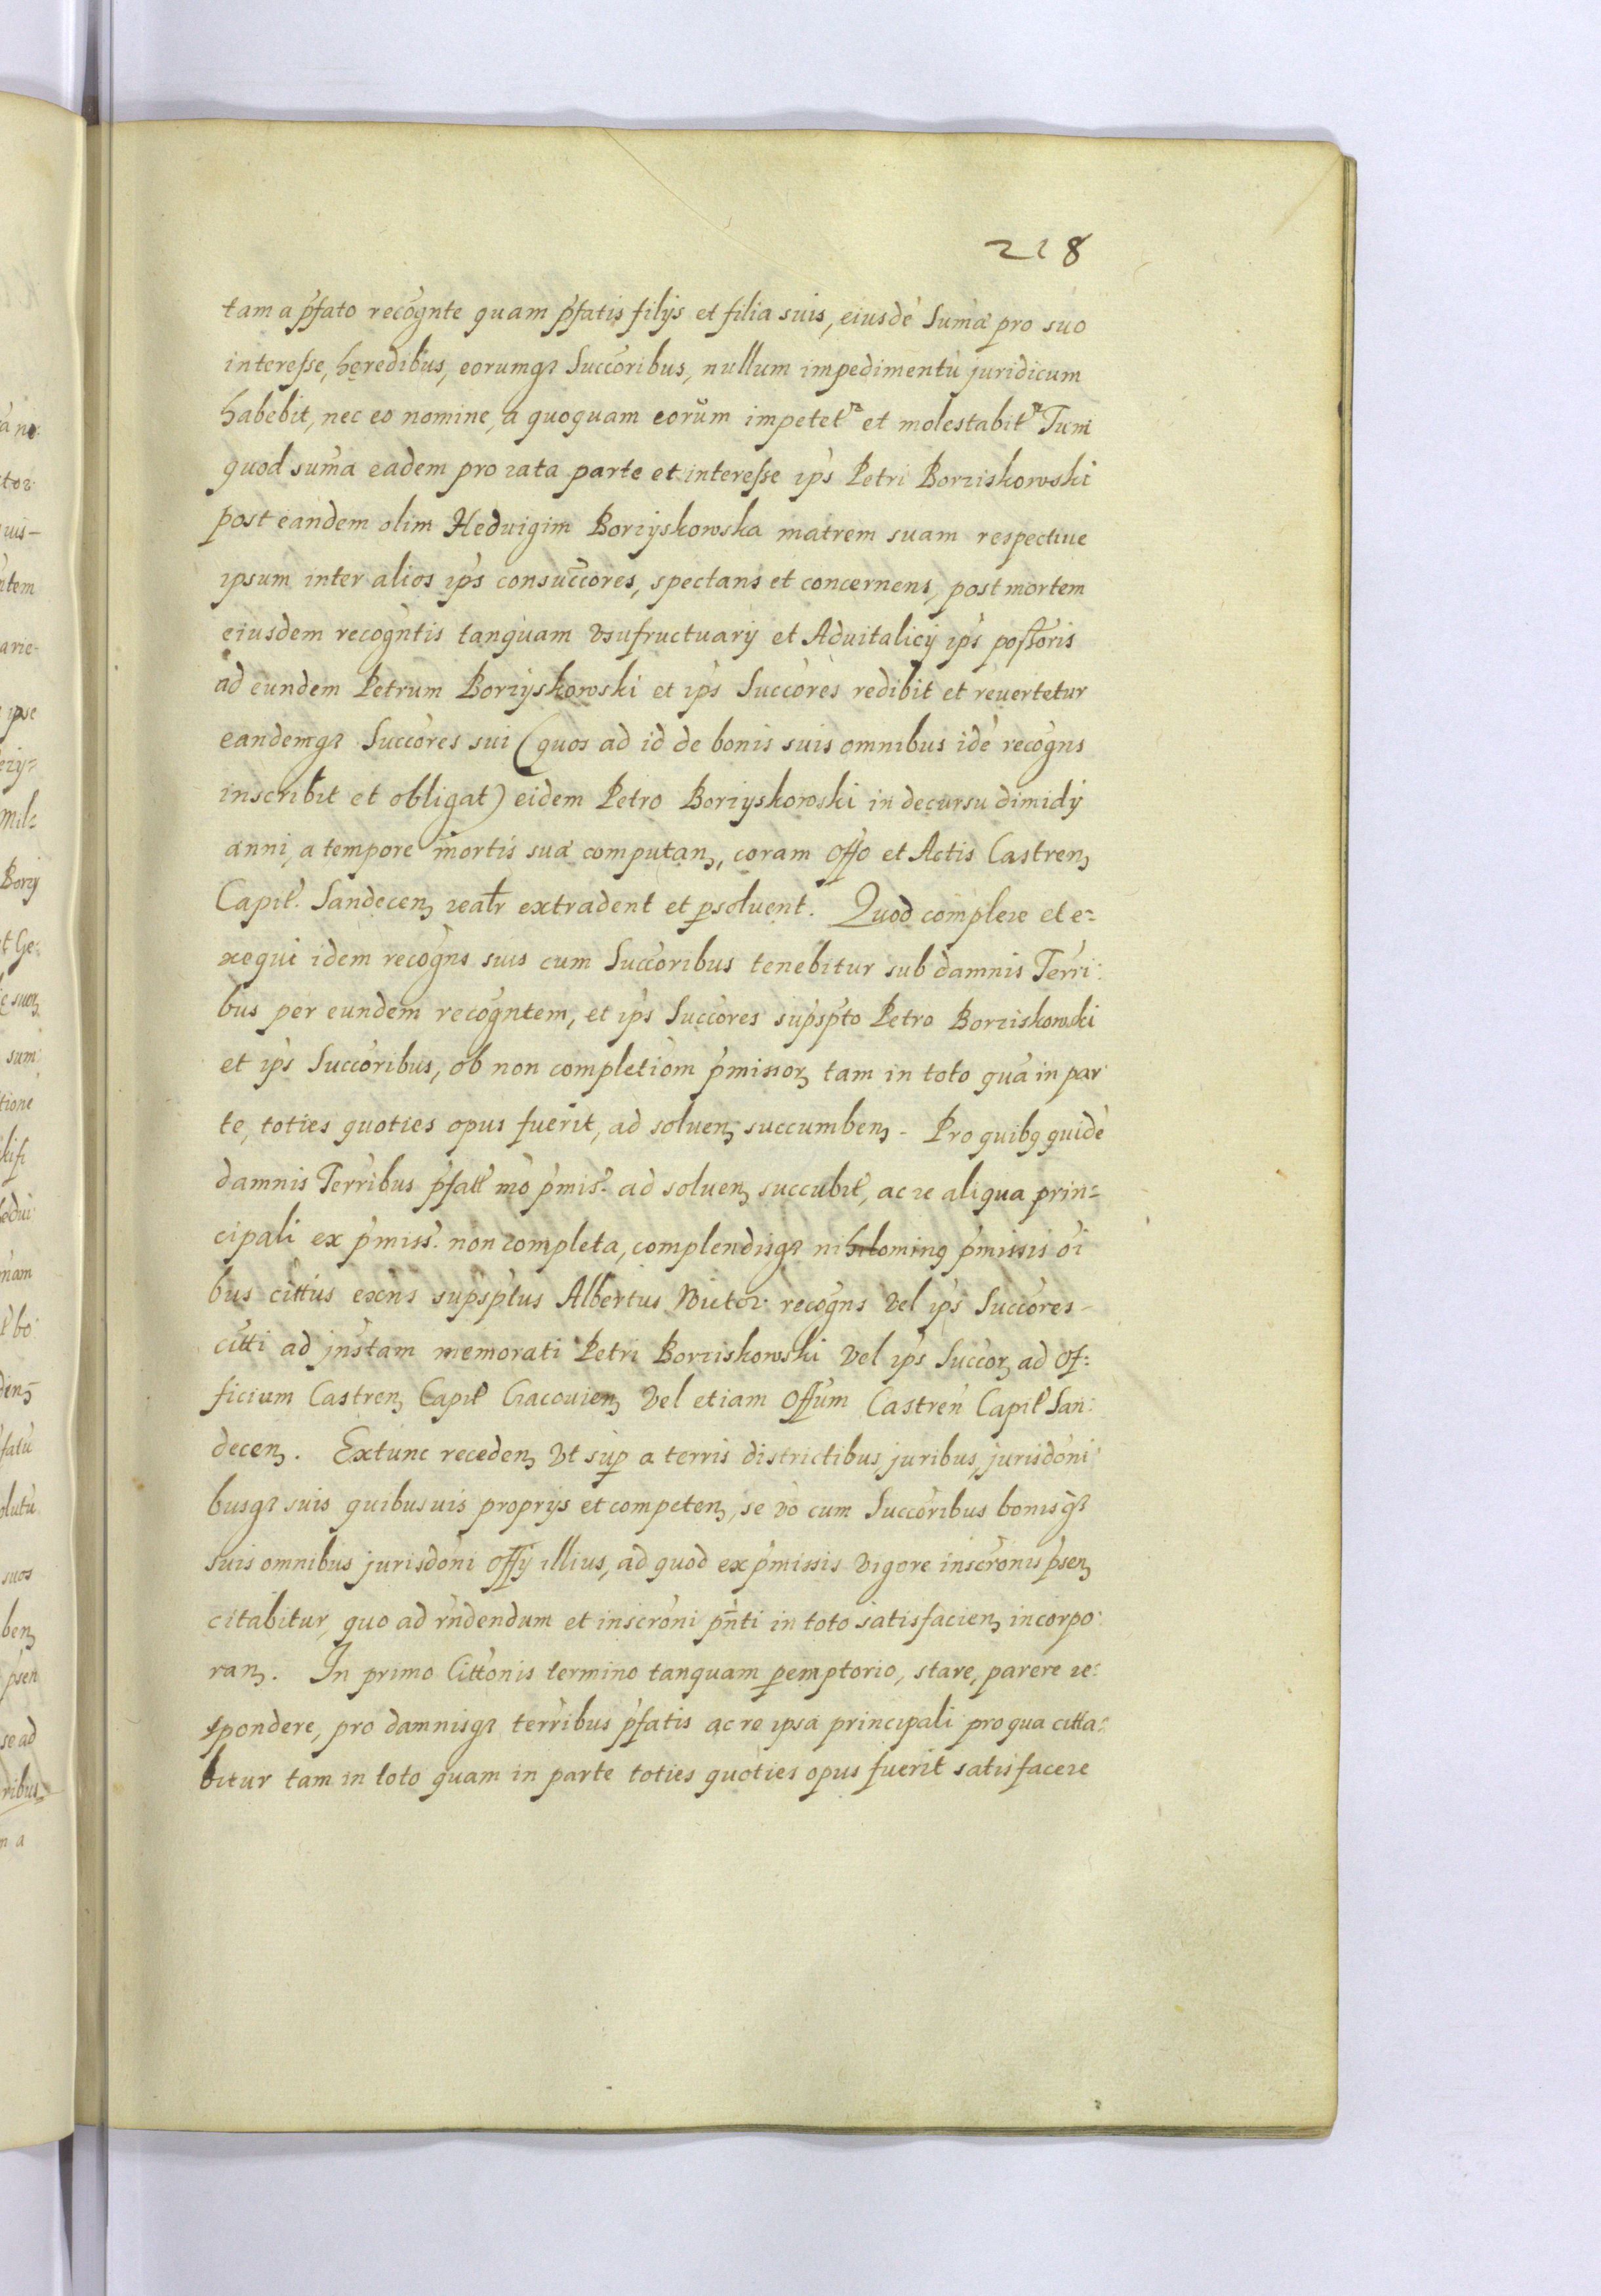 218
tam a pfato recognte quam pfatis filijs et filia suis, eiusdē Sumæ pro suo
interesse, hęredibus, eorumqз Succoribus, nullum impedimentū juridicum
habebit, nec eo nomine, a quoquam eorum impetetr et molestabitr Tum
quod suma eadem pro rata parte et interesse ips Petri Borziskowski
post eandem olim Heduigim Borzyskowska matrem suam respectiue
ipsum inter alios ips consuccores, spectans et concernens, post mortem
eiusdem recogntis tanquam vsufructuarij et Aduitalicij ips possoris
ad eundem Petrum Borzyskowski et ips Succores redibit et reuertetur
eandemqз Succores sui (quos ad id de bonis suis omnibus idē recogns
inscribit et obligat) eidem Petro Borzyskowski in decursu dimidij
anni, a tempore mortis suæ computanȝ, coram Offo et Actis Castrenȝ
Capitł. Sandecenȝ realr extradent et psoluent. Quod complere et e=
xequi idem recogns suis cum Succoribus tenebitur sub damnis Terri:
bus per eundem recogntem, et ips Succores supspto Petro Borziskowski
et ips Succoribus, ob non completiom pmissorȝ tam in toto quā in par
te, toties quoties opus fuerit, ad soluenȝ succumbenȝ - Pro quibȝ quidē
damnis Terribus pfatt mō pmiss. ad soluenȝ succubit, ac re aliqua prin=
cipali ex pmiss. non completa, complendisqз nihilominȝ pmissis oi
bus cittus exns supsptus Albertus Wictor recogns vel ips Succores -
citti ad jnstam memorati Petri Borziskowski vel ips Succorȝ ad Of:
ficium Castrenȝ Capitł Cracouienȝ vel etiam Offum Castren Capitł San:
decenȝ. Extunc recedenȝ vt sup a terris districtibus, juribus, jurisdoni
busqз suis quibusuis proprijs et competenȝ, se vo cum Succoribus bonisqз
suis omnibus jurisdoni Offij illius, ad quod ex pmissis vigore inscronis psenȝ
citabitur, quo ad rndendum et inscroni pnti in toto satisfacienȝ incorpo
ranȝ. In primo Cittonis termino tanquam pemptorio, stare, parere re:
spondere, pro damnisqз terribus pfatis ac re ipsa principali pro qua citta:
bitur tam in toto quam in parte toties quoties opus fuerit satisfacere